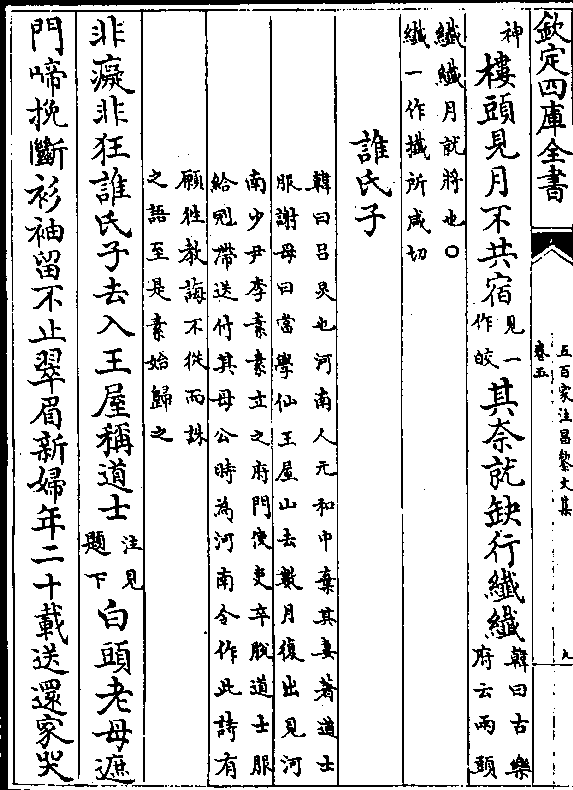 欽定四庫全書
五百家注昌黎文集
卷五
九
神樓頭見月不共宿見一作皎其奈就缺行纖纖韓曰古樂府云兩頭
纖纖月就將也○
纖一作攕所咸切
誰氏子
韓曰吕炅也河南人元和中棄其妻著道士
服謝母曰當學仙王屋山去數月復出見河
南少尹李素素立之府門使吏卒脫道士服
給冠帶送付其母公時為河南令作此詩有
願往教誨不從而誅
之語至是素始歸之
非癡非狂誰氏子去入王屋稱道士注見題下白頭老母遮
門啼挽斷衫袖留不止翠眉新婦年二十載送還家哭